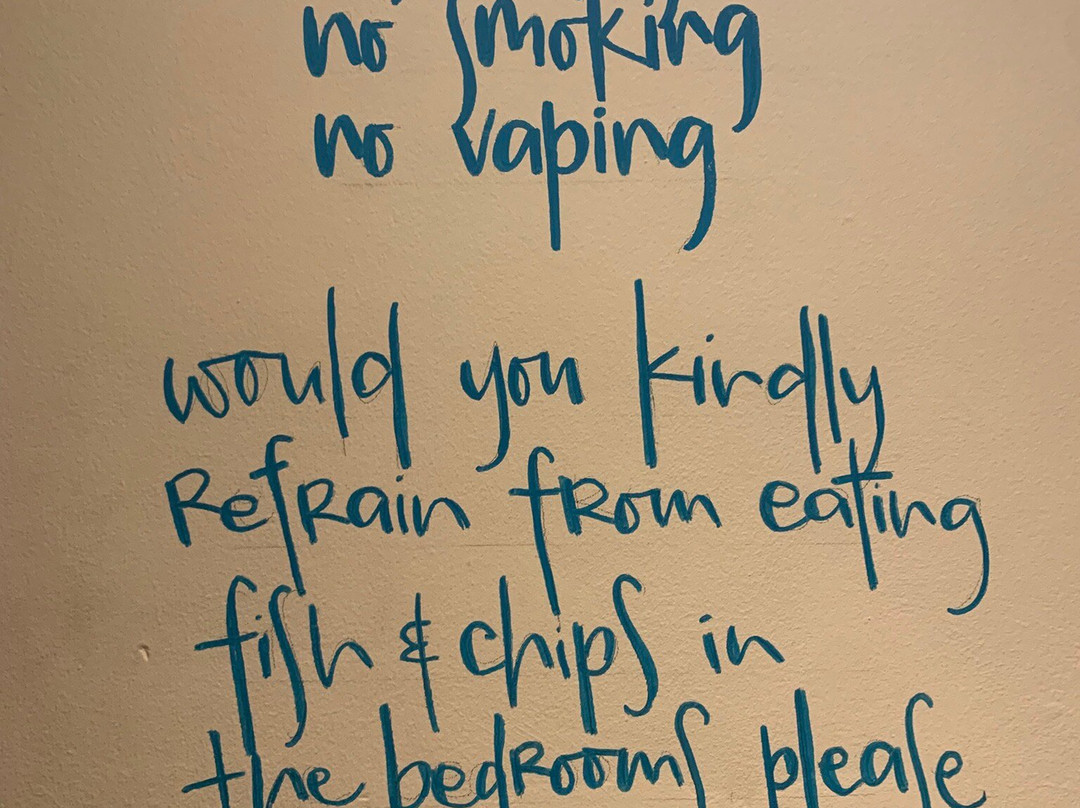 no smoking
no vaping
would you kindly
Refrain from eating
fish & chips in
the bedrooms please